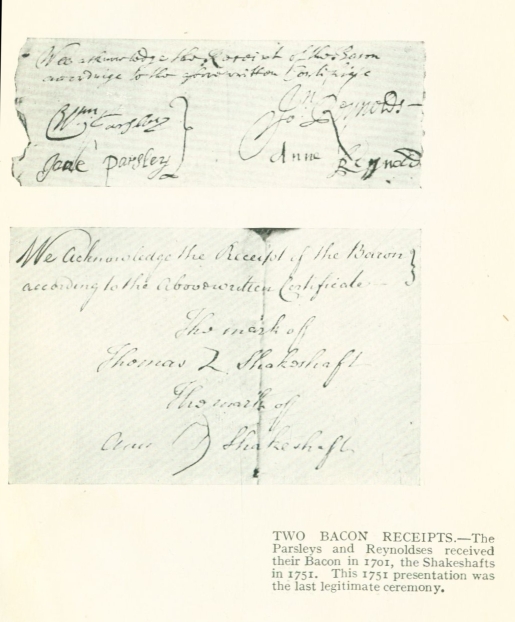 We acknowledge the Receipt of the Bacon
according to the above written Certificate
Wm Parsley
Jane Parsley
Jn Reynolds
Ann Reynolds
We Acknowledge the Receipt of the Bacon
according to the Abovewritten Certificate
The mark of
Thomas Shakeshaft
The mark of
Ann Shakeshaft
TWO BACON RECEIPTS.—The
Parsleys and Reynoldses received
their Bacon in 1701, the Shakeshafts
in 1751. This 1751 presentation was
the last legitimate ceremony.